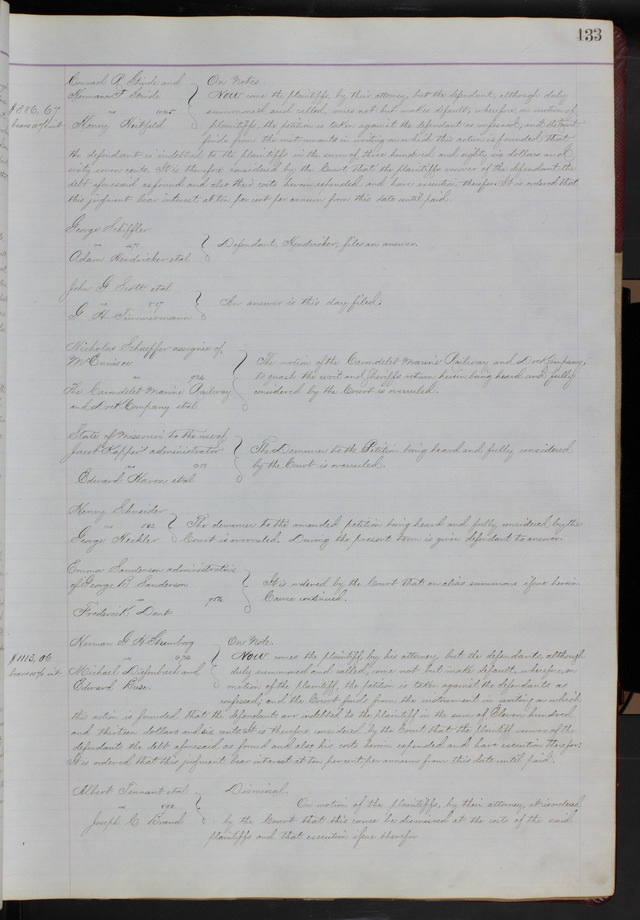 133
Conrad R. Stinde and
Hermann F. Stinde
vs
Henry Hertfeld
$386.67
bears 10% int
On Note.
Now come the plaintiffs, by their attorney, but the defendant, although duly
summoned and called, comes not but makes default; wherefore on motion of
plaintiffs, the petition is taken against the defendant as confessed; and the Court
finds from the instruments in writing on which this action is founded that
the defendant is indebted to the plaintiffs in the sum of three hundred and eighty six dollars and
sixty seven cents. It is therefore considered by the Court that the plaintiffs recover of the defendant the
debt aforesaid as found and also their costs herein expended and have execution therefor. It is ordered that
this judgment bear interest at ten per cent per annum from this date until paid.
George Schiffler
vs
Adam Hendricker et al
Defendant, Hendricker, files an answer.
John G. Scott et al
vs
G. H. Timmermann
An answer is this day filed.
Nicholas Schaeffer assignee of
vs
The Carondelet Marine Railway
and Dock Company et al
The motion of the Carondelet Marine Railway and Dock Company,
to quash the writ and Sheriffs return herein being heard and fully
considered by the Court is overruled.
State of Missouri to the use of
Jacob administrator
vs
Edward Haren et al
The Demurrer to the Petition being heard and fully considered
by the Court is overruled.
Henry Schneider
vs
George Hechler
The demurrer to the amended petition being heard and fully considered by the
Court is overruled. During the present term is given defendant to answer.
Emma Sanderson administratrix
of George B. Sanderson
vs
Frederick Dent
It is ordered by the Court that an alias summons issue herein
Cause continued.
Herman G. H.
vs
Michael Diefenbach and
Edward Buse.
$1113.06
bears 10% int
On Note.
Now comes the plaintiff, by his attorney, but the defendants, although
duly summoned and called, come not but make default; wherefore, on
motion of the plaintiff, the petition is taken against the defendants as
confessed; and the Court finds from the instrument in writing on which
this action is founded that the defendants are indebted to the plaintiff in the sum of Eleven hundred
and thirteen dollars and six cents. It is therefore considered by the Court that the plaintiff recover of the
defendants the debt aforesaid as found and also his costs herein expended and have execution therefor.
It is ordered that this judgment bear interest at ten per cent per annum from this date until paid.
Albert Tennant et al
vs
Joseph C. Brand
Dismissal.
On motion of the plaintiffs, by their attorney, it is ordered
by the Court that this cause be dismissed at the costs of the said
plaintiffs and that execution issue therefor